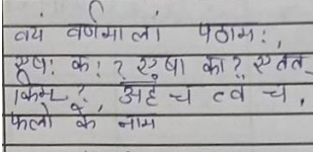 वयं वर्णमालां पठामः,
एषः कः? एषा का? एतत्
किम्?, अहं च त्वं च,
फलो के नाम